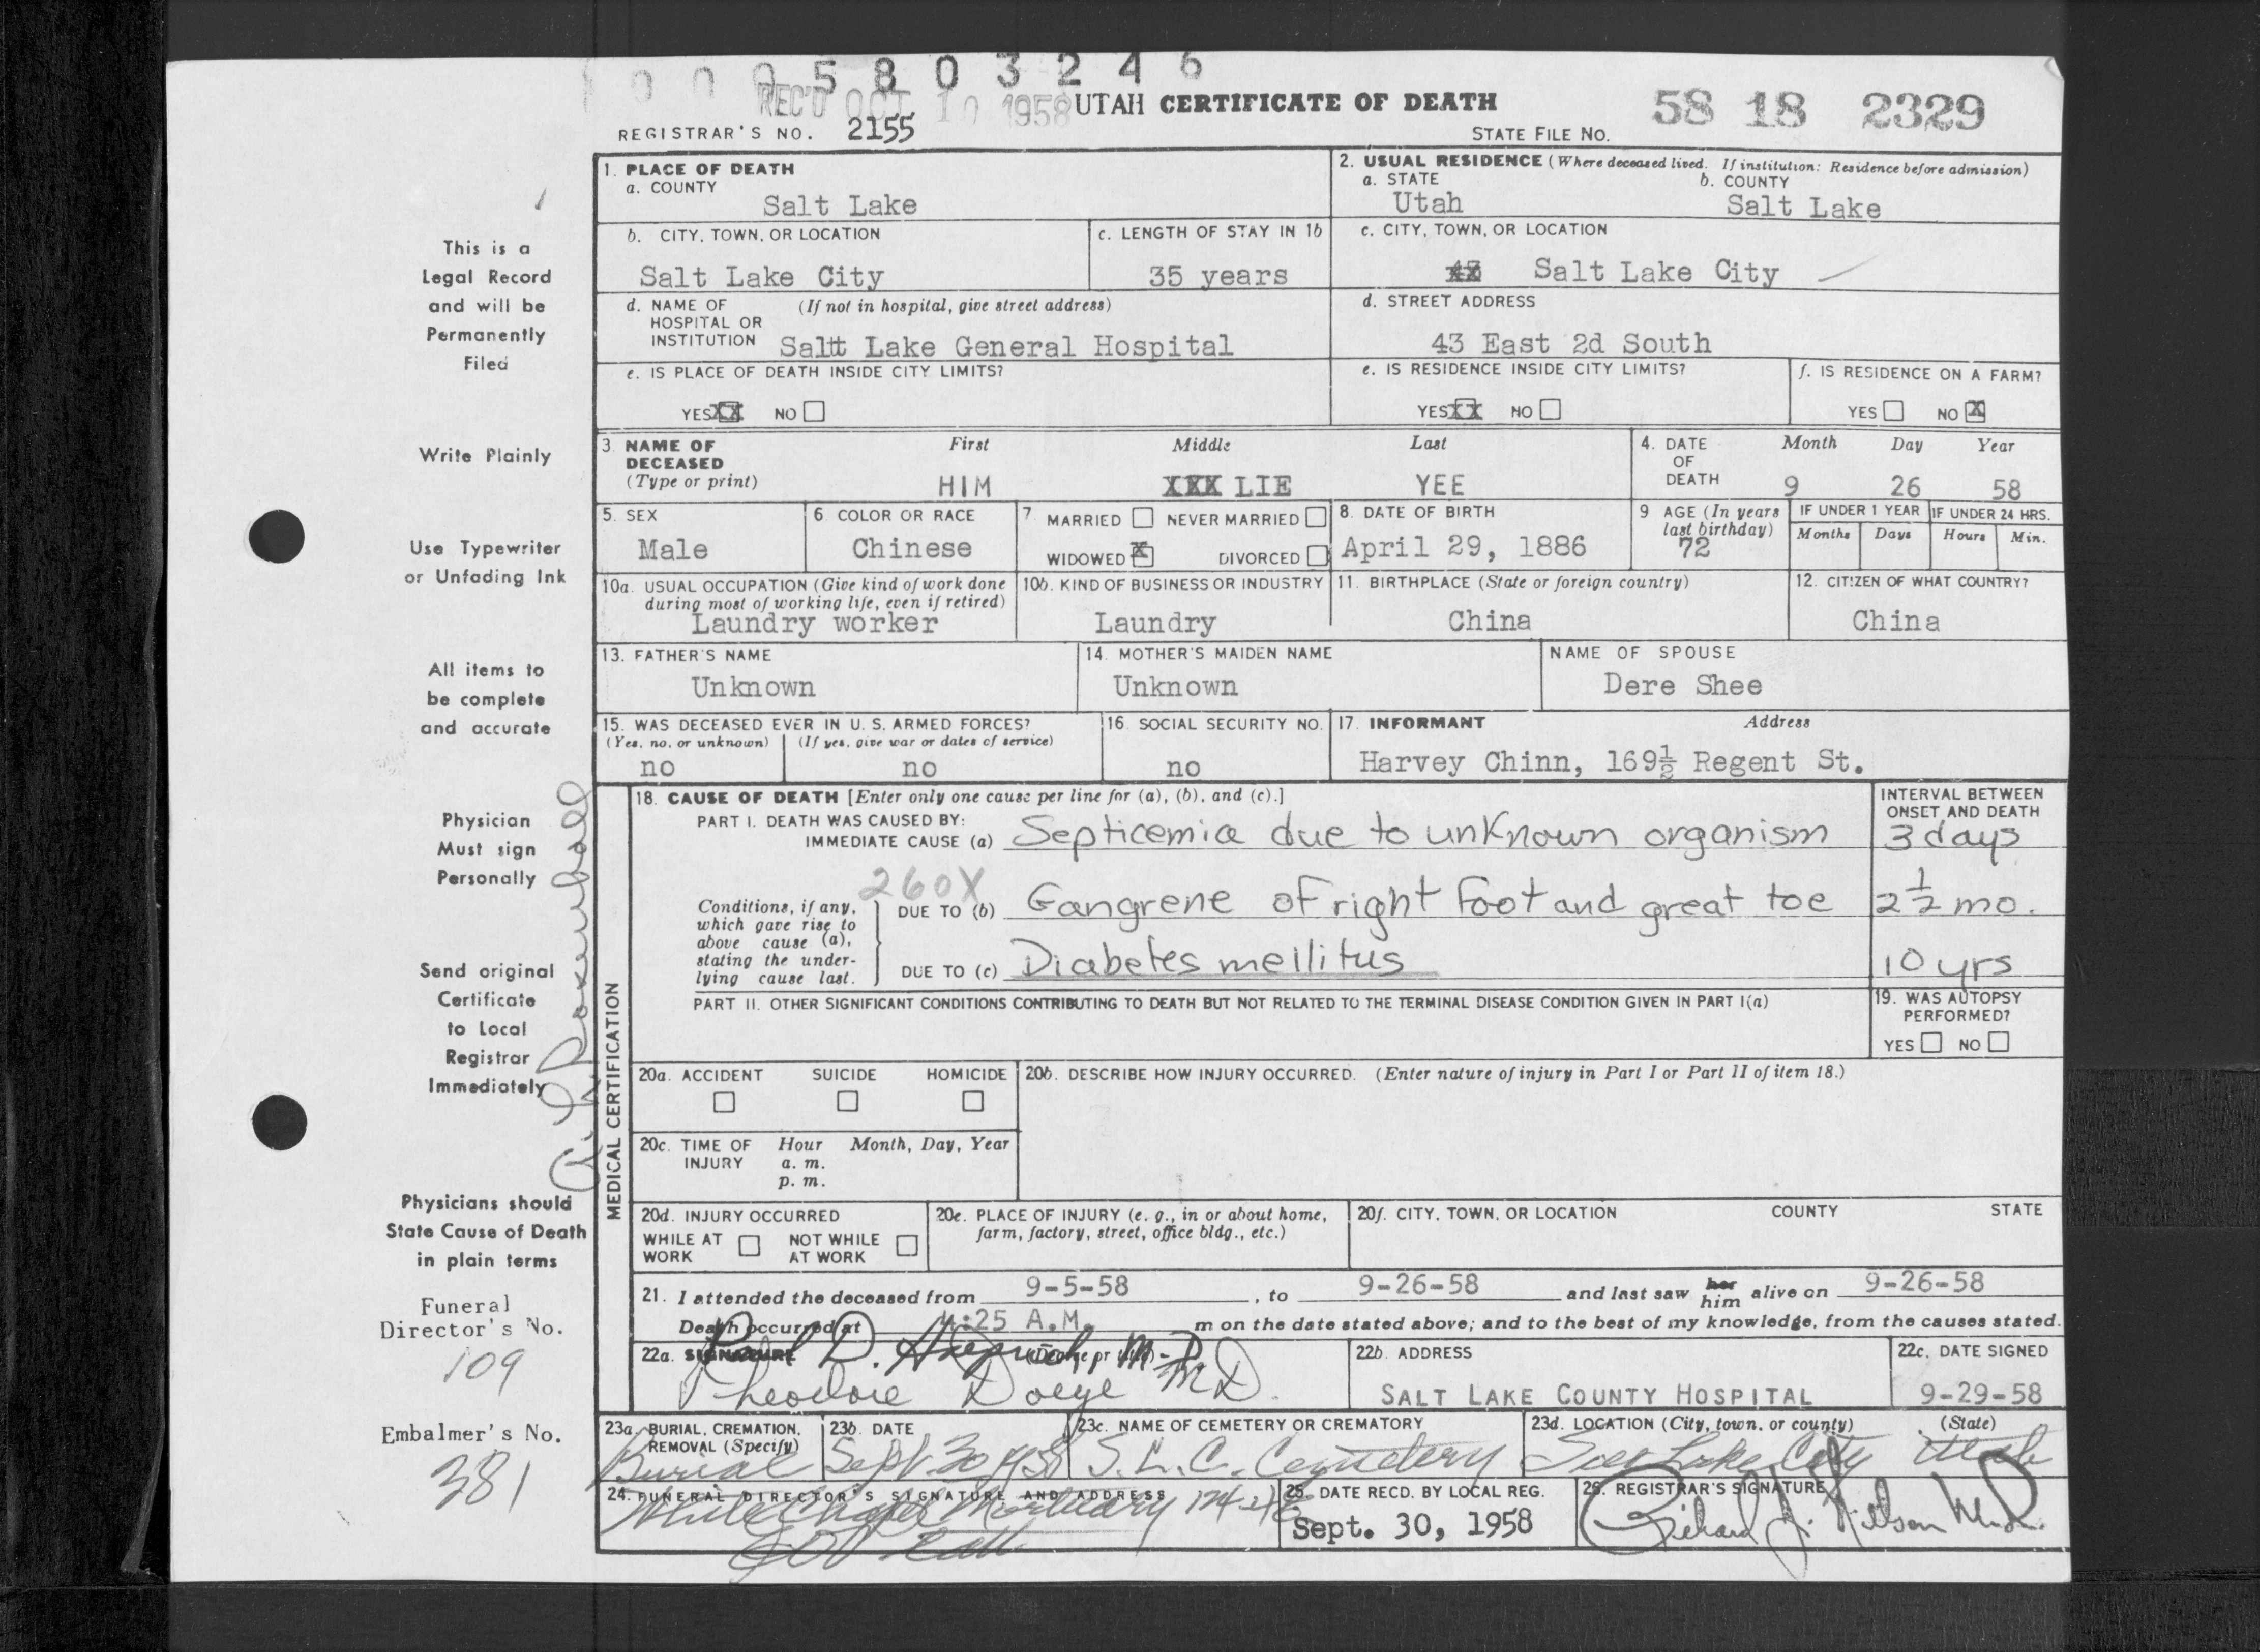 0 0 0 5 8 0 3 2 4 6
REC'D OCT 10 1958 UTAH CERTIFICATE OF DEATH 58 18 2329
REGISTRAR'S NO. 2155 STATE FILE NO.
1. PLACE OF DEATH
a. COUNTY
Salt Lake
2. USUAL RESIDENCE (Where deceased lived. If institution: Residence before admission)
a. STATE b. COUNTY
Utah Salt Lake
b. CITY, TOWN, OR LOCATION
Salt Lake City
c. LENGTH OF STAY IN 1b
35 years
c. CITY, TOWN, OR LOCATION
Salt Lake City
d. NAME OF (If not in hospital, give street address)
HOSPITAL OR
INSTITUTION Saltt Lake General Hospital
d. STREET ADDRESS
43 East 2d South
e. IS PLACE OF DEATH INSIDE CITY LIMITS?
YES XX NO
e. IS RESIDENCE INSIDE CITY LIMITS?
YES XX NO
f. IS RESIDENCE ON A FARM?
YES NO X
3. NAME OF First Middle Last
DECEASED
(Type or print) HIM XXX LIE YEE
4. DATE Month Day Year
OF
DEATH 9 26 58
5. SEX
Male
6. COLOR OR RACE
Chinese
7. MARRIED NEVER MARRIED
WIDOWED X DIVORCED
8. DATE OF BIRTH
April 29, 1886
9 AGE (In years
last birthday)
72
IF UNDER 1 YEAR IF UNDER 24 HRS.
Months Days Hours Min.
10a. USUAL OCCUPATION (Give kind of work done
during most of working life, even if retired)
Laundry worker
10b. KIND OF BUSINESS OR INDUSTRY
Laundry
11. BIRTHPLACE (State or foreign country)
China
12. CITIZEN OF WHAT COUNTRY?
China
13. FATHER'S NAME
Unknown
14. MOTHER'S MAIDEN NAME
Unknown
NAME OF SPOUSE
Dere Shee
15. WAS DECEASED EVER IN U. S. ARMED FORCES?
(Yes, no, or unknown) (If yes, give war or dates of service)
no no
16. SOCIAL SECURITY NO.
no
17. INFORMANT Address
Harvey Chinn, 169½ Regent St.
MEDICAL CERTIFICATION
18. CAUSE OF DEATH [Enter only one cause per line for (a), (b), and (c).]
INTERVAL BETWEEN
ONSET AND DEATH
PART I. DEATH WAS CAUSED BY:
IMMEDIATE CAUSE (a) Septicemia due to unknown organism 3 days
260X
Conditions, if any,
which gave rise to
above cause (a),
stating the under-
lying cause last.
DUE TO (b) Gangrene of right foot and great toe 2½ mo.
DUE TO (c) Diabetes mellitus 10 yrs
PART II. OTHER SIGNIFICANT CONDITIONS CONTRIBUTING TO DEATH BUT NOT RELATED TO THE TERMINAL DISEASE CONDITION GIVEN IN PART I(a)
19. WAS AUTOPSY
PERFORMED?
YES NO
20a. ACCIDENT SUICIDE HOMICIDE
20b. DESCRIBE HOW INJURY OCCURRED. (Enter nature of injury in Part I or Part II of item 18.)
20c. TIME OF Hour Month, Day, Year
INJURY a. m.
p. m.
20d. INJURY OCCURRED
WHILE AT NOT WHILE
WORK AT WORK
20e. PLACE OF INJURY (e. g., in or about home,
farm, factory, street, office bldg., etc.)
20f. CITY, TOWN, OR LOCATION COUNTY STATE
21. I attended the deceased from 9-5-58, to 9-26-58 and last saw her him alive on 9-26-58
Death occurred at 4:25 A.M. m on the date stated above; and to the best of my knowledge, from the causes stated.
22a. SIGNATURE (Degree or title)
D. M.D.
Theodore Doege MD.
22b. ADDRESS
SALT LAKE COUNTY HOSPITAL
22c. DATE SIGNED
9-29-58
23a. BURIAL, CREMATION,
REMOVAL (Specify)
Burial
23b. DATE
Sept. 30 1958
23c. NAME OF CEMETERY OR CREMATORY
S. L. C. Cemetery
23d. LOCATION (City, town, or county) (State)
Salt Lake City Utah
24. FUNERAL DIRECTOR'S SIGNATURE AND ADDRESS
Mortuary
25. DATE RECD. BY LOCAL REG.
Sept. 30, 1958
26. REGISTRAR'S SIGNATURE
Richard J. Nelson M.D.
This is a
Legal Record
and will be
Permanently
Filed
Write Plainly
Use Typewriter
or Unfading Ink
All items to
be complete
and accurate
Physician
Must sign
Personally
Send original
Certificate
to Local
Registrar
Immediately
Physicians should
State Cause of Death
in plain terms
Funeral
Director's No.
109
Embalmer's No.
381